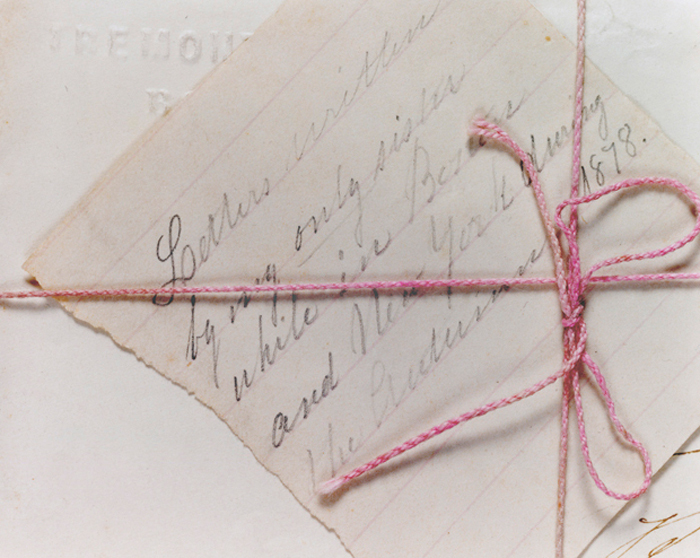 TREMON
Letters written
by my only sister
while in Boston
and New York during
the Autumn 1878.